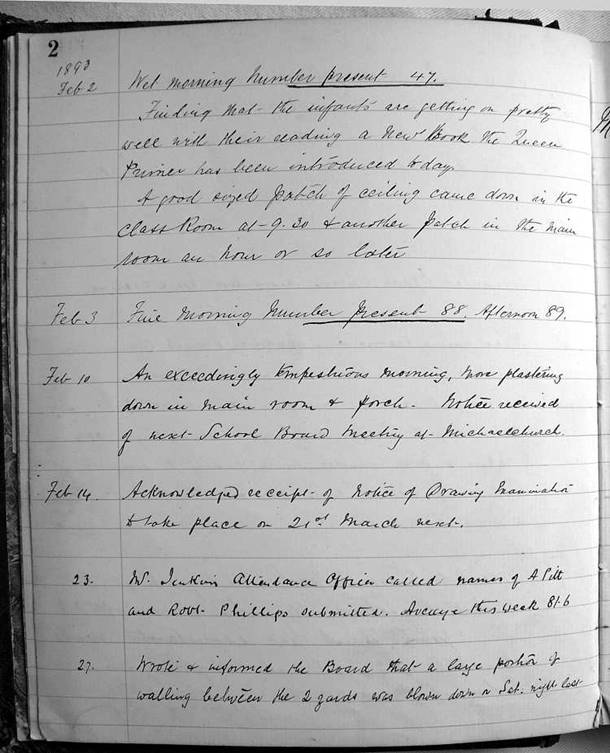 2
1893
Feb 2 Wet morning Number present 47.
Finding that the infants are getting on pretty
well with their reading a New Book the Queen
Primer has been introduced today.
A good sized patch of ceiling came down in the
Class Room at 9.30 & another patch in the main
room an hour or so later
Feb 3 Fine Morning Number Present 88. Afternoon 89.
Feb 10 An exceedingly tempestuous morning, more plastering
down in main room & porch. Notice received
of next School Board Meeting at Michaelchurch.
Feb 14. Acknowledged receipt of Notice of Drawing Examination
to take place on 21st March next.
23. Mr. Jenkins Attendance Officer called names of A Pitt
and Robt. Phillips submitted. Average this week 81.6
27. Wrote & informed the Board that a large portion of
walling between the 2 yards was blown down on Sat. night last